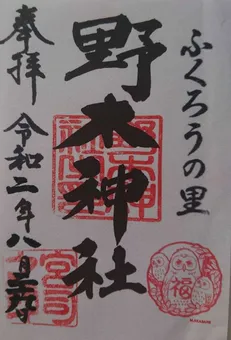 ふくろうの里
野木神社
奉拝
令和二年八月
福